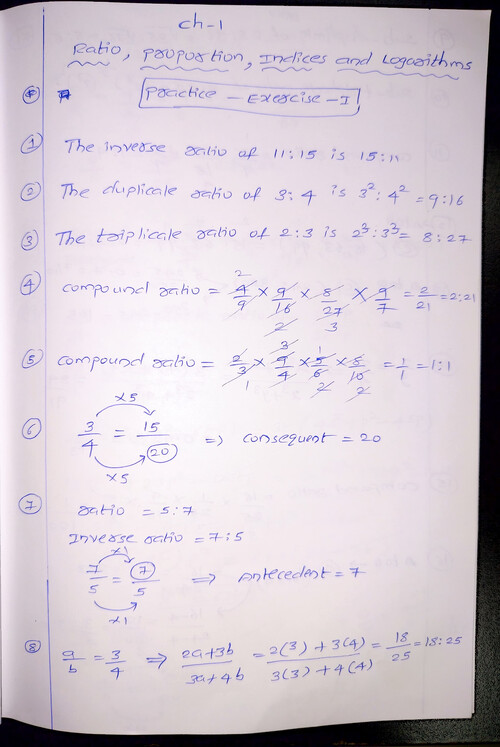 ch-1
Ratio, proportion, Indices and Logarithms
Practice - Exercise - I
1 The inverse ratio of 11:15 is 15:11
2 The duplicale ratio of 3:4 is 3²:4² = 9:16
3 The triplicale ratio of 2:3 is 2³:3³ = 8:27
4 compound ratio = 4/9 × 9/16 × 8/27 × 9/7 = 2/21 = 2:21
5 compound ratio = 2/3 × 9/4 × 5/6 × 8/10 = 1/1 = 1:1
×5
6 3/4 = 15/20 => consequent = 20
×5
7 ratio = 5:7
Inverse ratio = 7:5
×1
7/5 = 7/5 => Antecedent = 7
×1
8 a/b = 3/4 => 2a+3b/3a+4b = 2(3)+3(4)/3(3)+4(4) = 18/25 = 18:25